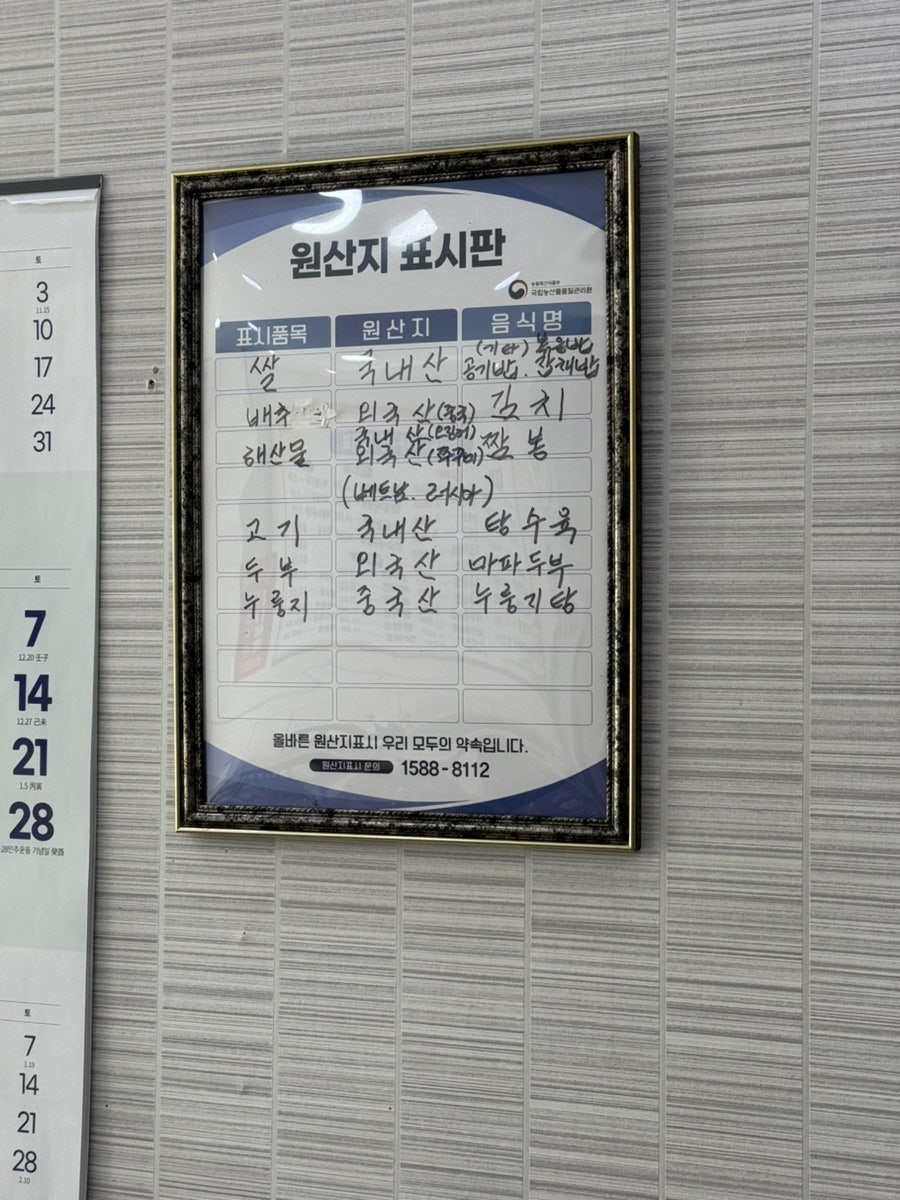 원산지 표시판
농림축산식품부
국립농산물품질관리원
표시품목 원산지 음식명
쌀 국내산 (기타) 볶음밥 공기밥. 잡채밥
배추 외국산(중국) 김치
해산물 국내산(오징어) 외국산(쭈꾸미) 짬뽕
(베트남. 러시아)
고기 국내산 탕수육
두부 외국산 마파두부
누룽지 중국산 누룽지탕
올바른 원산지표시 우리 모두의 약속입니다.
원산지표시 문의 1588-8112
토
3
11.15
10
17
24
31
토
7
12.20 壬子
14
12.27 己未
21
1.5 丙寅
28
28민주운동 기념일 癸酉
토
7
1.19
14
21
28
2.10